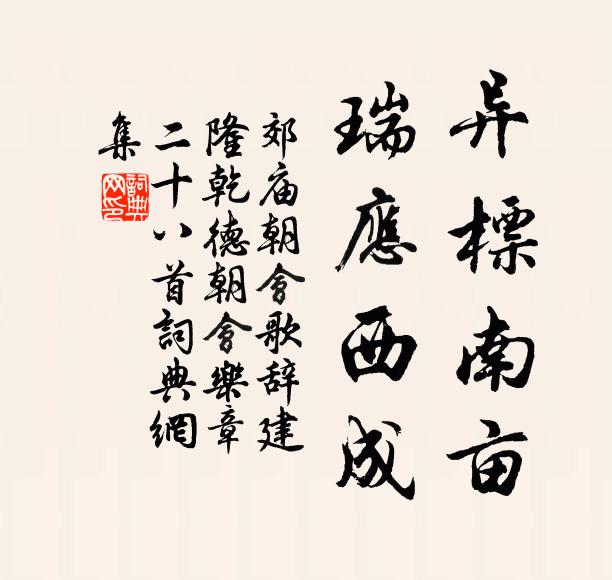 异標南亩
瑞應西成
郊庙朝會歌辞建
隆乾德朝會樂章
二十八首詞典網
集
詞典網印